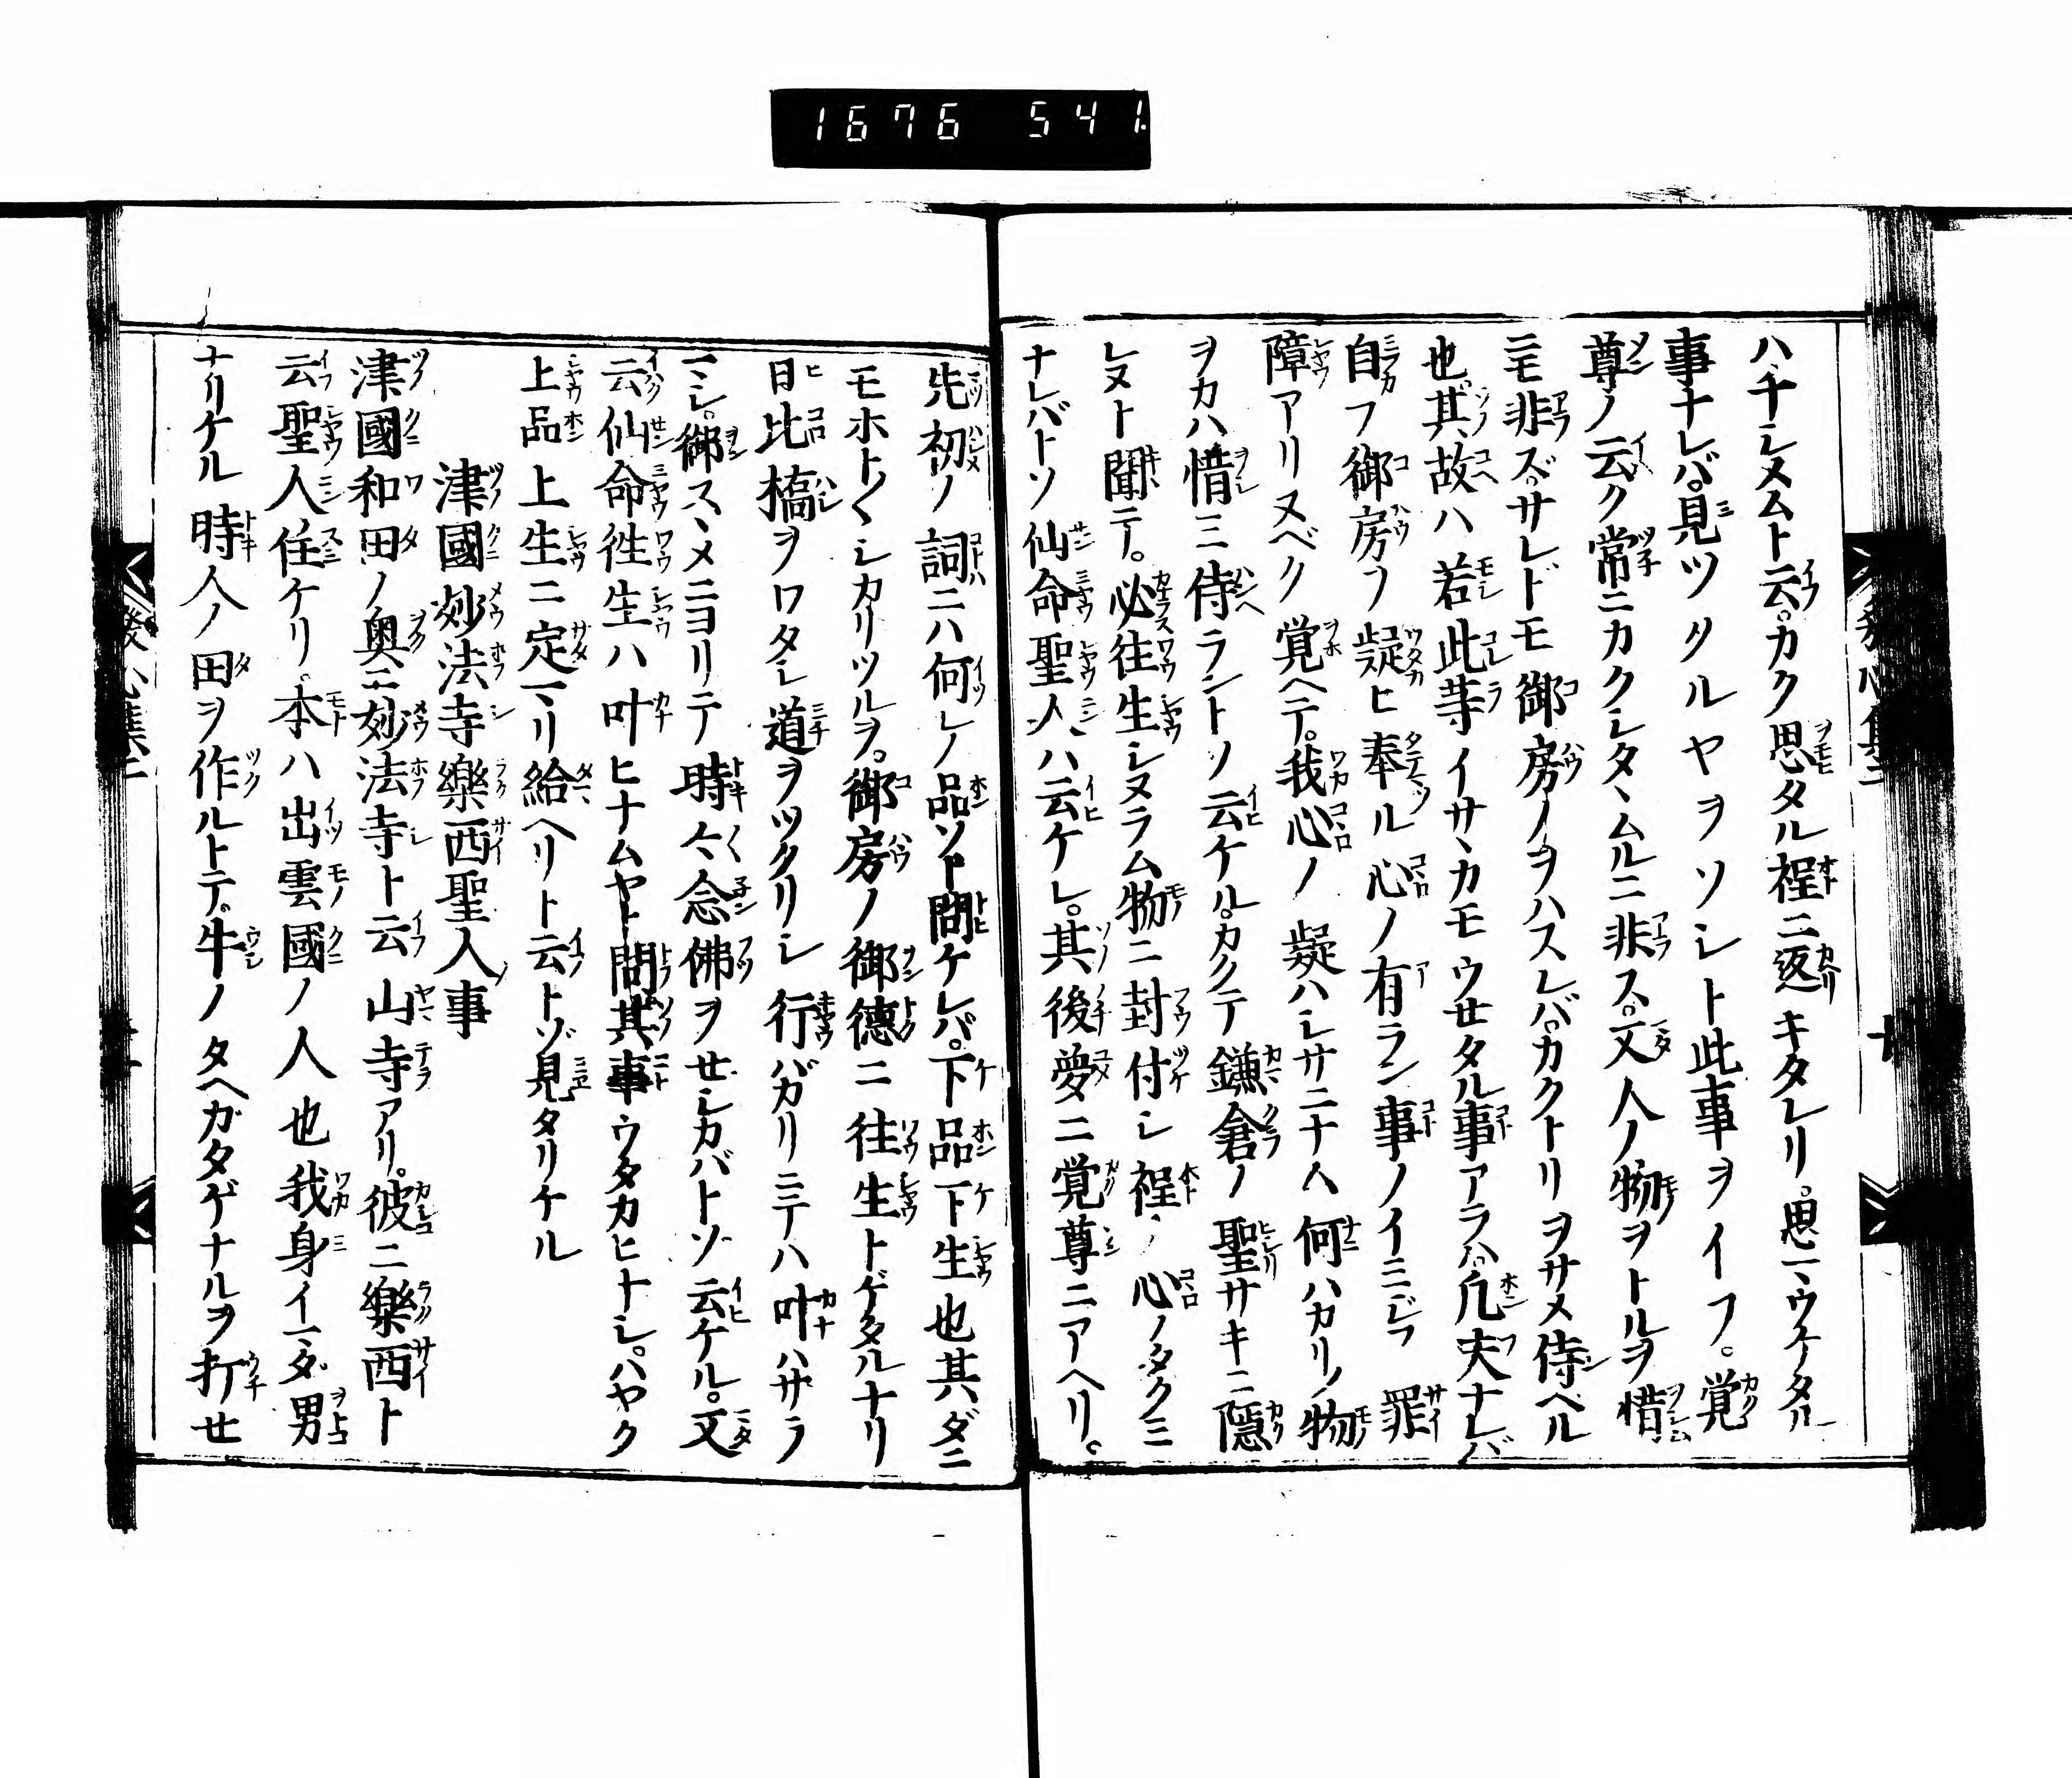 1676 541.
ハ千シヌムト云。カク思タル程ニ返キタレリ。思マウケタル
事ナレバ。見ツタルヤヲソシト此事ヲイフ。覚
尊ノ云ク常ニカクシタヽムルニ非ス。又人ノ物ヲトルヲ惜
ニモ非ズ。サレドモ御房ノヲハスレバ。カクトリヲサメ侍ベル
也。其故ハ若此等イサヽカモウセタル事アラハ。凡夫ナレバ
自ラ御房ヲ疑ヒ奉ル心ノ有ラン事ノイミジフ罪
障アリヌベク覚ヘテ。我心ノ疑ハシサニナン何ハカリノ物
ヲカハ惜ミ侍ラントソ云ケル。カクテ鎌倉ノ聖サキニ隠
レヌト聞テ。必往生シヌラム物ニ封付シ程ノ心ノタクミ
ナレバトソ仙命聖人ハ云ケレ。其後夢ニ覚尊ニアヘリ。
先初ノ詞ニハ何レノ品ソト問ケレバ。下品下生也其ダニ
モホトくシカリツルヲ。御房ノ御徳ニ往生トゲタルナリ
日比橋ヲワタシ道ヲツクリシ行バカリニテハ叶ハサラ
マシ。御スヽメニヨリテ時々念佛ヲせシカバトソ云ケル。又
云仙命徃生ハ叶ヒナムヤト問其事ウタカヒナシ。ハヤク
上品上生ニ定マリ給ヘリト云トゾ見タリケル
津國妙法寺樂西聖人事
津國和田ノ奥ニ妙法寺ト云山寺アリ。彼ニ樂西ト
云聖人住ケリ。本ハ出雲國ノ人也我身イマダ男
ナリケル時人ノ田ヲ作ルトテ。牛ノタヘガタゲナルヲ打せ